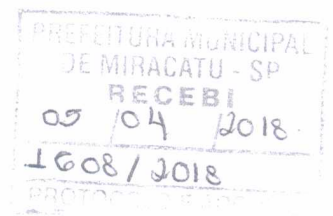 PREFEITURA MUNICIPAL
DE MIRACATU - SP
RECEBI
05 / 04 / 2018
1608 / 2018